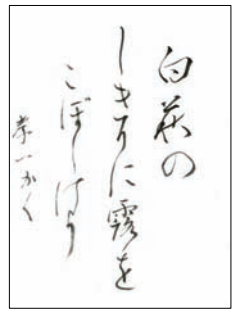 白萩の
しきりに露を
こぼしけり
恭一かく